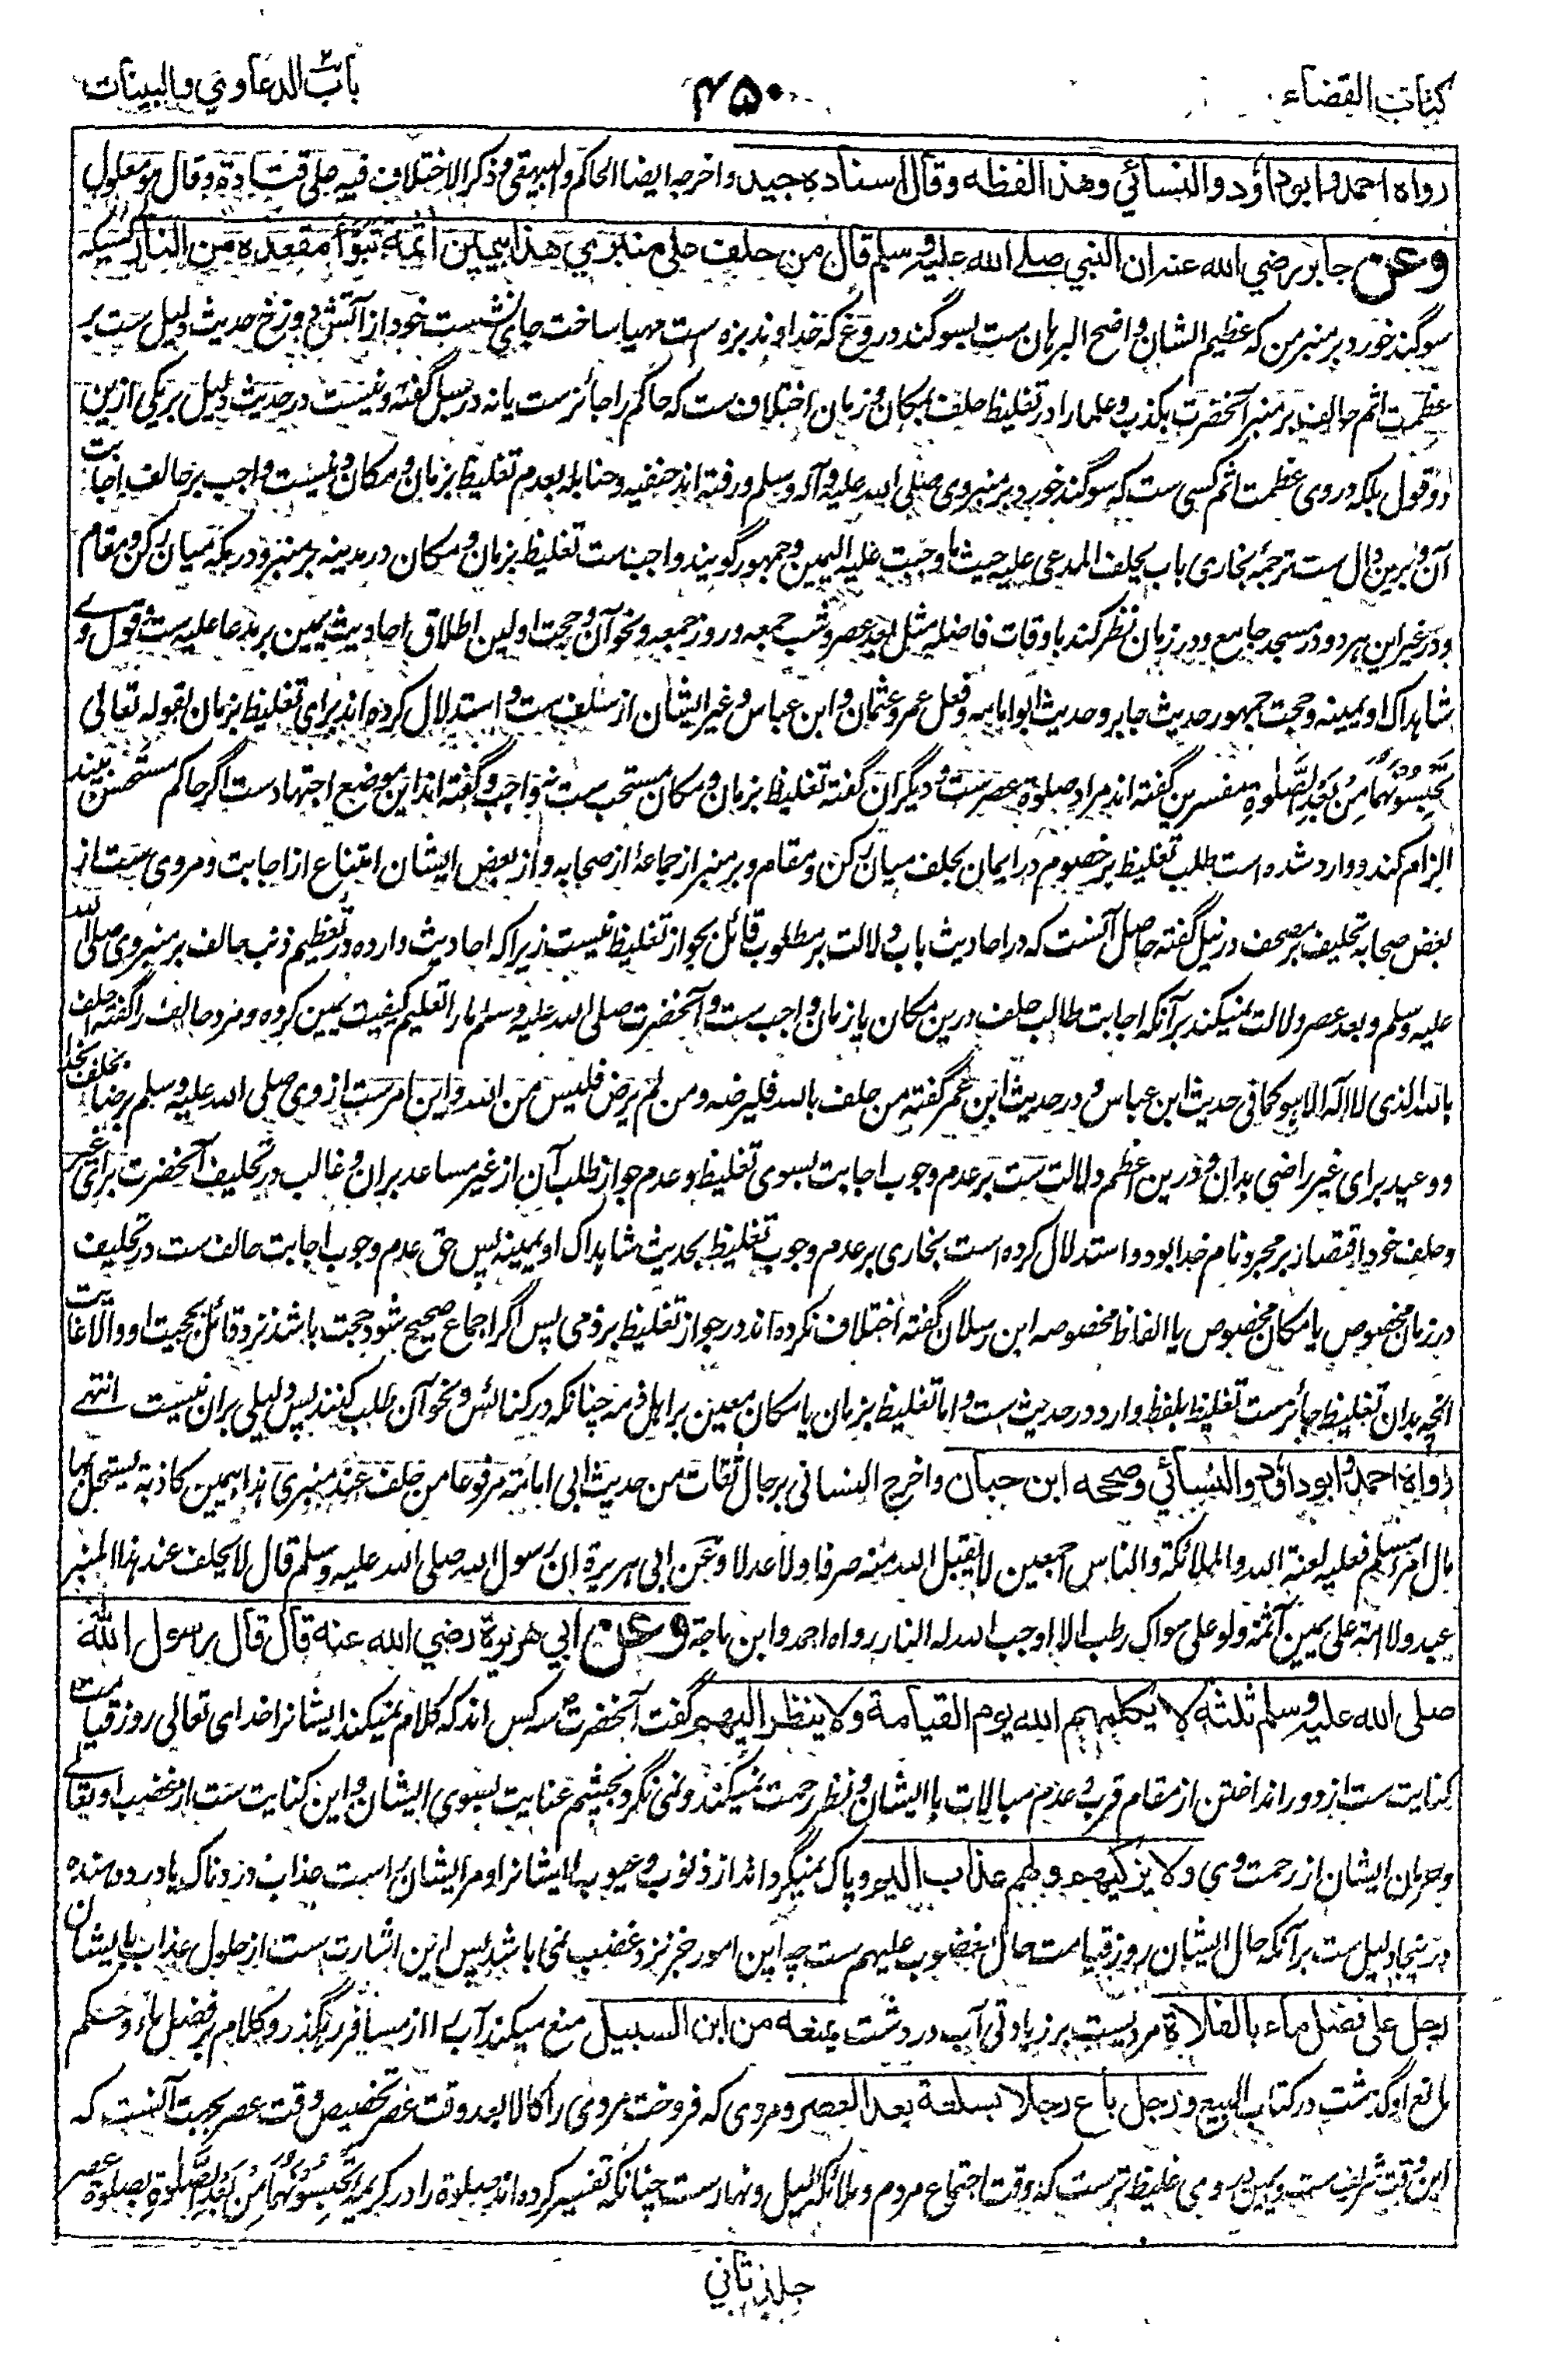 کتاب القضاء
۴۵۰
باب الدعاوي والبینات
رواه احمد وابو داؤد والنسائي وهذا لفظه وقال اسناده جید واخرجه ایضا الحاکم والبیهقی وذکر الاختلاف فیه علی قتادة وقال هو معلول
وعن جابر رضي الله عنه ان النبي صلے الله علیه وسلم قال من حلف علی منبري هذا بیمین آثمة تبوأ مقعده من النار کسیکه
سوگند خورد بر منبر من که عظیم الشان واضح البرهان ست بسوگند دروغ که خداوند بزه ست مهیا ساخت جای نشست خود از آتش دوزخ حدیث دلیل ست بر
عظمت اثم حالف بر منبر آنحضرت بکذب وعلما را در تغلیظ حلف بمکان وزمان اختلاف ست که حاکم را جائزست یا نه در سبل گفته ونیست در حدیث دلیل بر یکی ازین
دو قول بلکه در وی عظمت اثم کسی ست که سوگند خورد بر منبر وی صلی الله علیه وآله وسلم ورفته اند حنفیه وحنابله بعدم تغلیظ بزمان ومکان ونیست واجب بر حالف اجابت
آن وبرین دال ست ترجمۀ بخاری باب یحلف المدعی علیه حیث ما وجبت علیه الیمین وجمهور گویند واجب ست تغلیظ بزمان ومکان در مدینه بر منبر ودر مکه میان رکن ومقام
ودر غیر این هر دو در مسجد جامع ودر زمان نظر کند باوقات فاضله مثل بعد عصر وشب جمعه وروز جمعه ونحو آن وحجت اولین اطلاق احادیث یمین بر مدعا علیه ست وقول وے
شاهداک او یمینه وحجت جمهور حدیث جابر وحدیث ابو امامه وفعل عمر وعثمان وابن عباس وغیر ایشان از سلف ست واستدلال کرده اند برای تغلیظ بزمان بقوله تعالی
تَحْبِسُونَهُمَا مِنْ بَعْدِ الصَّلٰوةِ مفسرین گفته اند مراد صلوة عصرست ودیگران گفته تغلیظ بزمان ومکان مستحب ست نه واجب وگفته اند این موضع اجتهاد ست اگر حاکم مستحسن بیند
الزام کند ووارد شده است طلب تغلیظ بر خصوم در ایمان بحلف میان رکن ومقام وبر منبر از جماعۀ از صحابه واز بعض ایشان امتناع از اجابت ومروی ست از
بعض صحابه تحلیف بر مصحف در نیل گفته حاصل آنست که در احادیث باب دلالت بر مطلوب قائل بجواز تغلیظ نیست زیراکه احادیث وارده در تعظیم ذنب حالف بر منبر وی صلی الله
علیه وسلم وبعد عصر دلالت نمیکند بر آنکه اجابت طالب حلف درین مکان یا زمان واجب ست وآنحضرت صلی الله علیه وسلم مارا تعلیم کیفیت یمین کرده ومرد حالف را گفته احلف
بالله الذی لا اله الا هو کما فی حدیث ابن عباس ودر حدیث ابن عمر گفته من حلف بالله فلیرضه ومن لم یرض فلیس من الله واین امرست از وی صلی الله علیه وسلم برضا بحلف بخدا
ووعید برای غیر راضی بدان ودرین اعظم دلالت ست بر عدم وجوب اجابت بسوی تغلیظ وعدم جواز طلب آن از غیر مساعد بران وغالب در تحلیف آنحضرت برای غیر
وحلف خود اقتصار بر مجرد نام خدا بود واستدلال کرده است بخاری بر عدم وجوب تغلیظ بحدیث شاهداک او یمینه پس حق عدم وجوب اجابت حالف ست در تحلیف
در زمان مخصوص یا مکان مخصوص یا الفاظ مخصوصه ابن رسلان گفته اختلاف نکرده اند در جواز تغلیظ بر ذمی پس اگر اجماع صحیح شود حجت باشد نزد قائل بحجیت او والا غایت
انچه بدان تغلیظ جائزست تغلیظ بلفظ وارد در حدیث ست واما تغلیظ بزمان یا مکان معین بر اهل ذمه چنانکه در کنائس ونحو آن طلب کنند پس دلیلی بران نیست انتهے
رواه احمد وابو داؤد والنسائي وصححه ابن حبان واخرج النسائی برجال ثقات من حدیث ابی امامة مرفوعا من حلف عند منبری هذا بیمین کاذبة یستحل بها
مال امرء مسلم فعلیه لعنة الله والملائکة والناس اجمعین لا یقبل الله منه صرفا ولا عدلا وعن ابی هریرة ان رسول الله صلی الله علیه وسلم قال لا یحلف عند هذا المنبر
عبد ولا امة علی یمین آثمة ولو علی سواک رطب الا اوجب الله له النار رواه احمد وابن ماجة وعن ابي هریرة رضي الله عنه قال قال رسول الله
صلی الله علیه وسلم ثلثة لا یکلمهم الله یوم القیامة ولا ینظر الیهم گفت آنحضرت سه کس اند که کلام نمیکند ایشانرا خدای تعالی روز قیامت
کنایت ست از دور انداختن از مقام قرب وعدم مبالات با ایشان ونظر رحمت نمیکند ونمی نگرد بچشم عنایت بسوی ایشان واین کنایت ست از غضب او تعالے
وحرمان ایشان از رحمت وی ولا یزکیهم ولهم عذاب الیم وپاک نمیگرداند از ذنوب وعیوب ایشانرا ومر ایشانراست عذاب دردناک یا درد دهنده
درینجا دلیل ست بر آنکه حال ایشان روز قیامت حال مغضوب علیهم ست چه این امور جز نزد غضب نمی باشد پس این اشارت ست از حلول عذاب بایشان
رجل علی فضل ماء بالفلاة مردیست بر زیادتی آب در دشت یمنعه من ابن السبیل منع میکند آب را از مسافر رهگذر وکلام بر فضل ماء وحکم
مانع او گذشت در کتاب البیع ورجل بایع رجلا بسلعة بعد العصر ومردی که فروخت مردی را کالا بعد وقت عصر تخصیص وقت عصر بجهت آنست که
این وقت شریف ست ویمین در وی غلیظ ترست که وقت اجتماع مردم وملائکۀ لیل ونهارست چنانکه تفسیر کرده اند صلوة را در کریمه تَحْبِسُونَهُمَا مِنْ بَعْدِ الصَّلٰوةِ بصلوة عصر
جلد ثاني